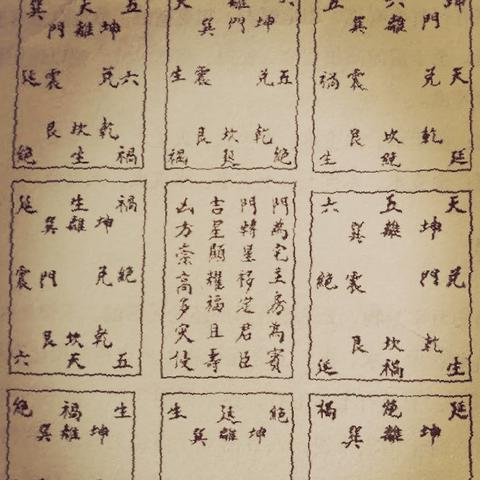 巽 天 五
門 離 坤
延 震 兌 六
艮 坎 乾
絕 生 禍
離
巽 門 坤
生 震 兌 五
艮 坎 乾
禍 延 絕
五 六 坤
巽 離 門
禍 震 兌 天
艮 坎 乾
生 絕 延
延 生 禍
巽 離 坤
震 門 兌 絕
艮 坎 乾
六 天 五
門為宅主房為賓
門轉星移定君臣
吉星顯耀福且壽
凶方崇高多災侵
六 五 天
巽 離 坤
絕 震 門 兌
艮 坎 乾
延 禍 生
絕 禍 生
巽 離 坤
生 延 絕
巽 離 坤
禍 絕 延
巽 離 坤